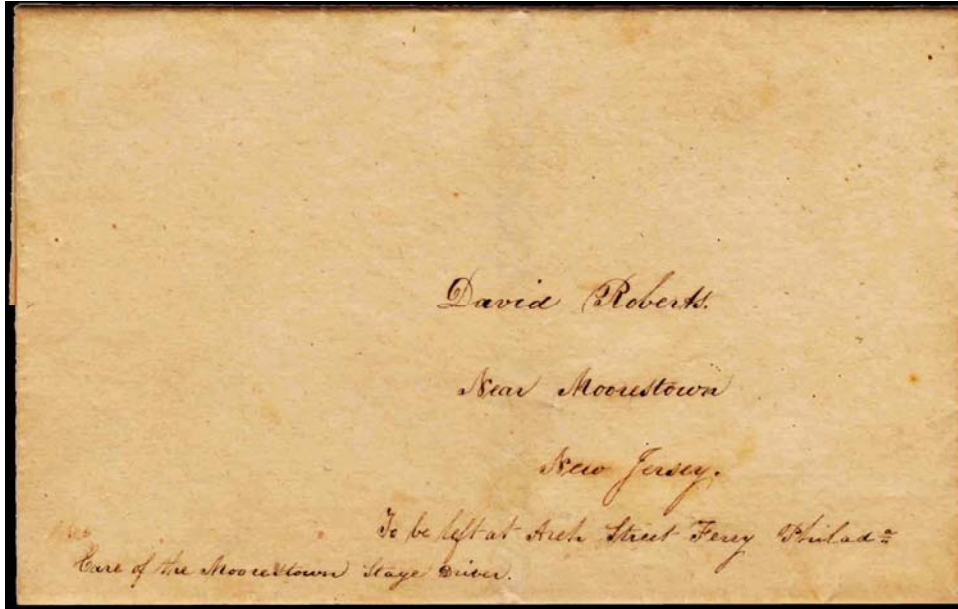 David Roberts.
Near Moorestown
New Jersey.
To be left at Arch Street Ferry Philadᵃ
Care of the Moorestown Stage Driver.